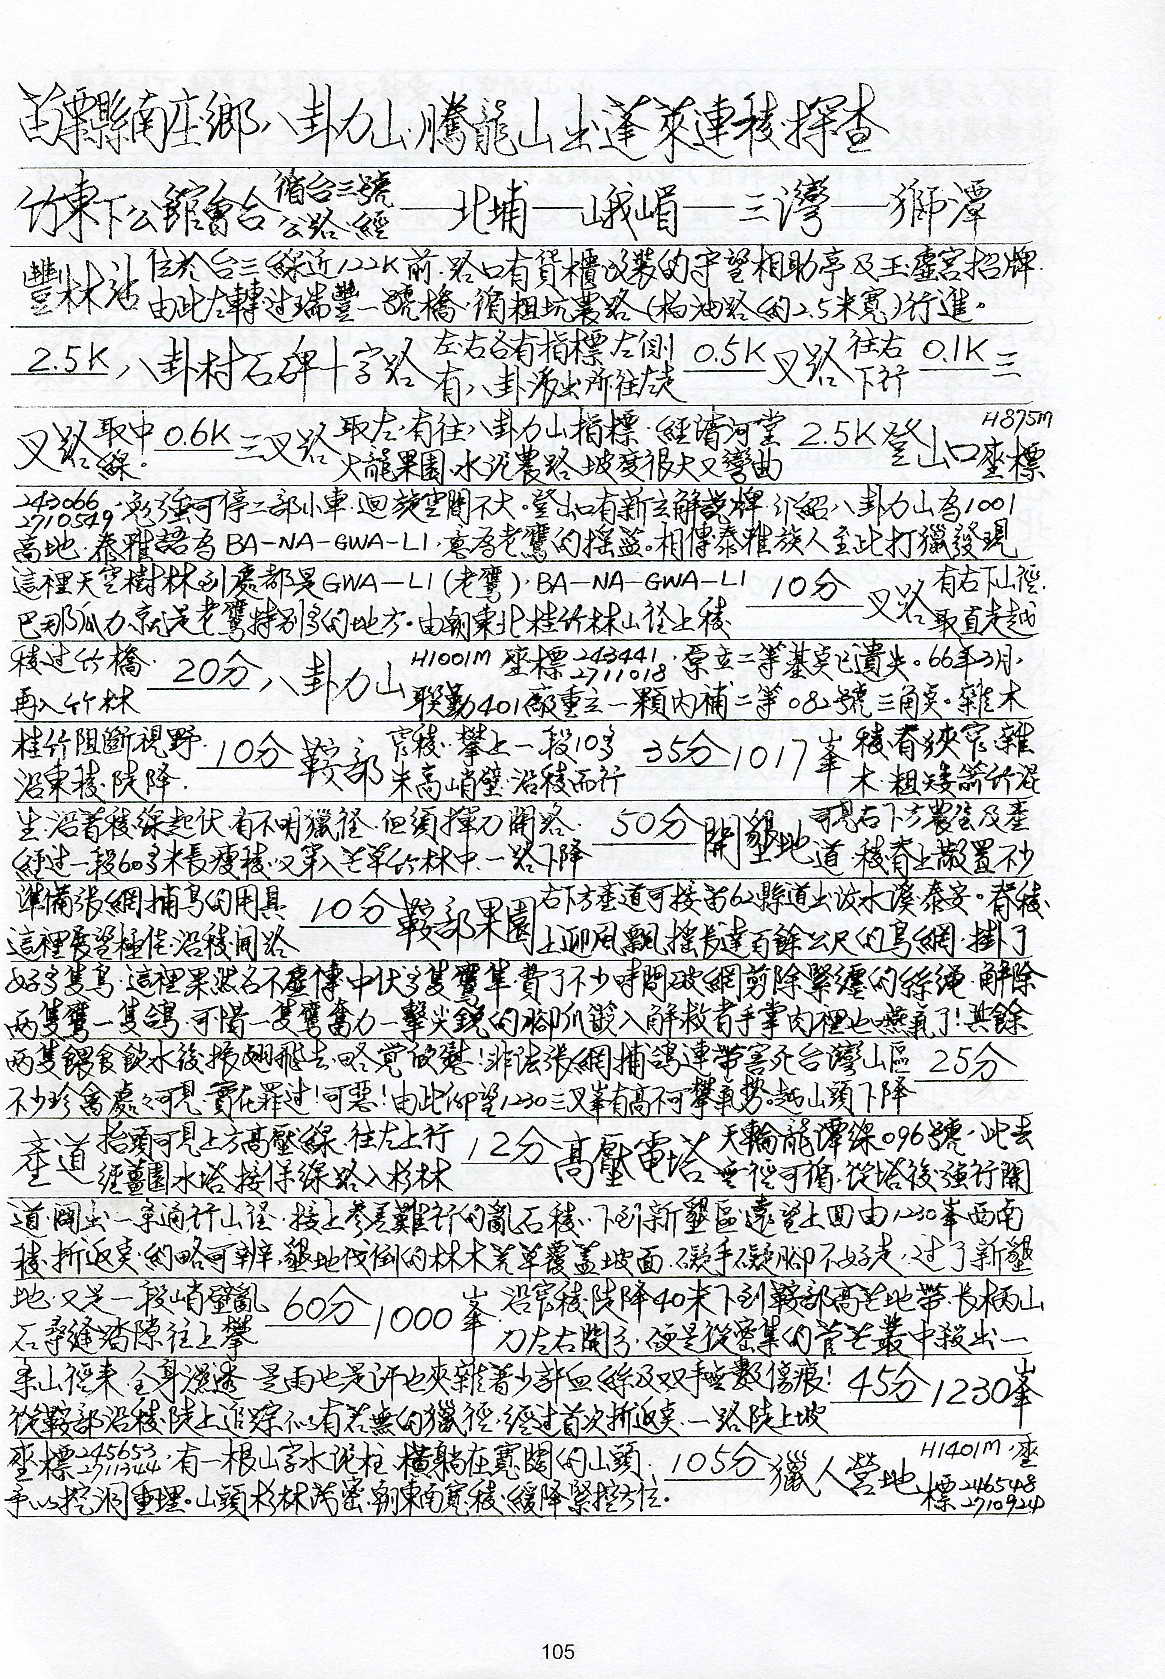 苗栗縣南庄鄉八卦力山.騰龍山出蓬萊連稜.探查
竹東下公館會合 循台三號公路.經 —北埔—峨嵋—三灣—獅潭
豐林站 位於台三線近122K前.路口有貨櫃改裝的守望相助亭及玉虛宮招牌.
由此左轉過瑞豐一號橋.循粗坑農路(柏油路約2.5米寬)行進。
2.5K 八卦村石碑十字路 左右各有指標.左側有八卦派出所往左走 0.5K 叉路 往右下行 0.1K 三
叉路 取中線. 0.6K 三叉路 取左.有往八卦力山指標.經清河堂火龍果園.水泥農路.坡度很大又彎曲 2.5K 登山口 H875M 座標
243066 2710549.勉強可停二部小車.迴旋空間不大。登山口有新立解說牌.介紹八卦力山為1001
高地.泰雅語為BA-NA-GWA-LI.意為老鷹的搖籃。相傳泰雅族人至此打獵發現
這裡天空樹林到處都是GWA-LI(老鷹).BA-NA-GWA-LI
巴那瓜力.就是老鷹特別多的地方。由朝東北桂竹林山徑上稜 10分 叉路 有右下山徑.取直走越
稜過竹橋.再入竹林 20分 八卦力山 H1001M 座標243441 2711018.原立二等基點已遺失。66年3月,
聯勤401廠重立一顆內補二等082號三角點。雜木
桂竹阻斷視野.沿東稜.陡降. 10分 鞍部 窄稜.攀上一段10多米高峭壁.沿稜而行 35分 1017峯 稜脊狹窄.雜木.粗矮箭竹混
生.沿著稜線起伏.有不明獵徑.但須揮刀開路.
經過一段60多米長瘦稜.又第入芒草竹林中.一路下降 50分 開墾地 可見右下方農舍及產道.稜脊上散置不少
準備張網捕鳥的用具
這裡展望極佳.沿稜開路 10分 鞍部果園 右下方產道可接苗62縣道出汶水溪.泰安。脊稜.
上迎風飄搖長達百餘公尺的鳥網.掛了
好多隻鳥.這裡果然名不虛傳.中伏多隻鷹隼.費了不少時間破網剪除緊纏的絲繩.解除
兩隻鷹一隻鴿.可惜一隻鷹奮力一擊尖銳的腳爪嵌入解救者手掌肉裡也嚥氣了!其餘
兩隻餵食飲水後振翅飛去.略覺欣慰!非法張網捕鴿連帶害死台灣山區
不少珍禽處々可見.實在罪過!可惡!由此仰望1230三叉峯有高不可攀氣勢。越山頭下降 25分
產道 抬頭可見上方高壓線.往左上行經薑園水塔.接保線路入杉林 12分 高壓電塔 天輪龍潭線096號.此去無徑可循.從塔後強行開
道.闢出一條通行山徑.接上參差難行的亂石稜.下到新墾區.遠望上回由1230峯西南
稜.折返點.約略可辨.墾地伐倒的林木荒草覆蓋坡面.礙手礙腳不好走.过了新墾
地.又是一段峭壁亂石.尋縫踏隙往上攀 60分 1000峯 沿窄稜.陡降40米下到鞍部高芒地帶.長柄山
刀左右開弓.硬是從密集的菅芒叢中殺出一
条山徑來.全身濕透.是雨也是汗也夾雜著少許血絲及双手無數傷痕!
從鞍部沿稜陡上追踪似有若無的獵徑.經過首次折返點.一路陡上坡 45分 1230峯
座標245653 2711344.有一根山字水泥柱.橫躺在寬闊的山頭.
予以挖洞重埋。山頭杉林茂密.朝東南寬稜.緩降.緊控方位。 105分 獵人營地 H1401M.座標246548 2710924
105